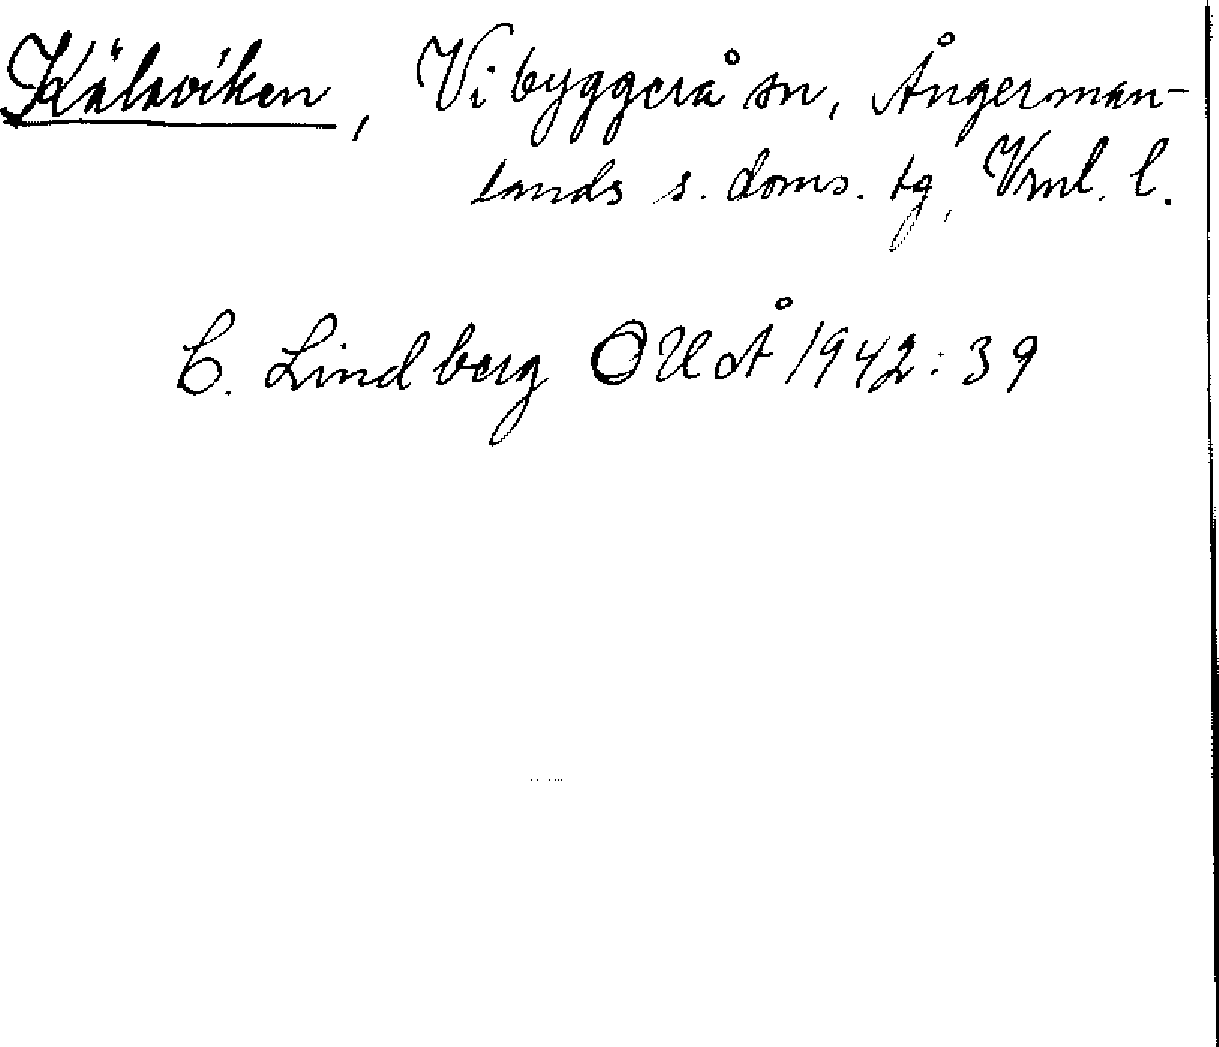 Kälsviken, Vibyggerå sn, Ångerman-
lands s. doms. tg, Vrnl. l.
C. Lindberg OUÅ 1942: 39